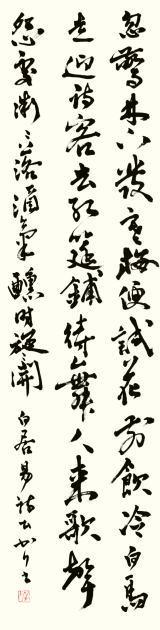 忽驚林下發寒梅便試花前飲冷白馬
走迎詩客去紅筵鋪待舞人來歌聲
怨處微々落酒氣醺時旋開 白居易詩